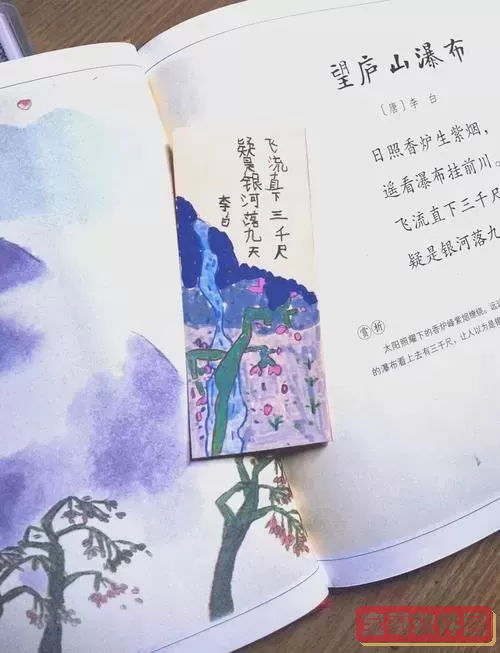 望庐山瀑布
〔唐〕李 白
日照香炉生紫烟，
遥看瀑布挂前川。
飞流直下三千尺
疑是银河落九
赏析
太阳照耀下的香炉峰紫烟缭绕。远远
的瀑布看上去有三千尺，让人以为是银
飞流直下三千尺
疑是银河落九天
李白